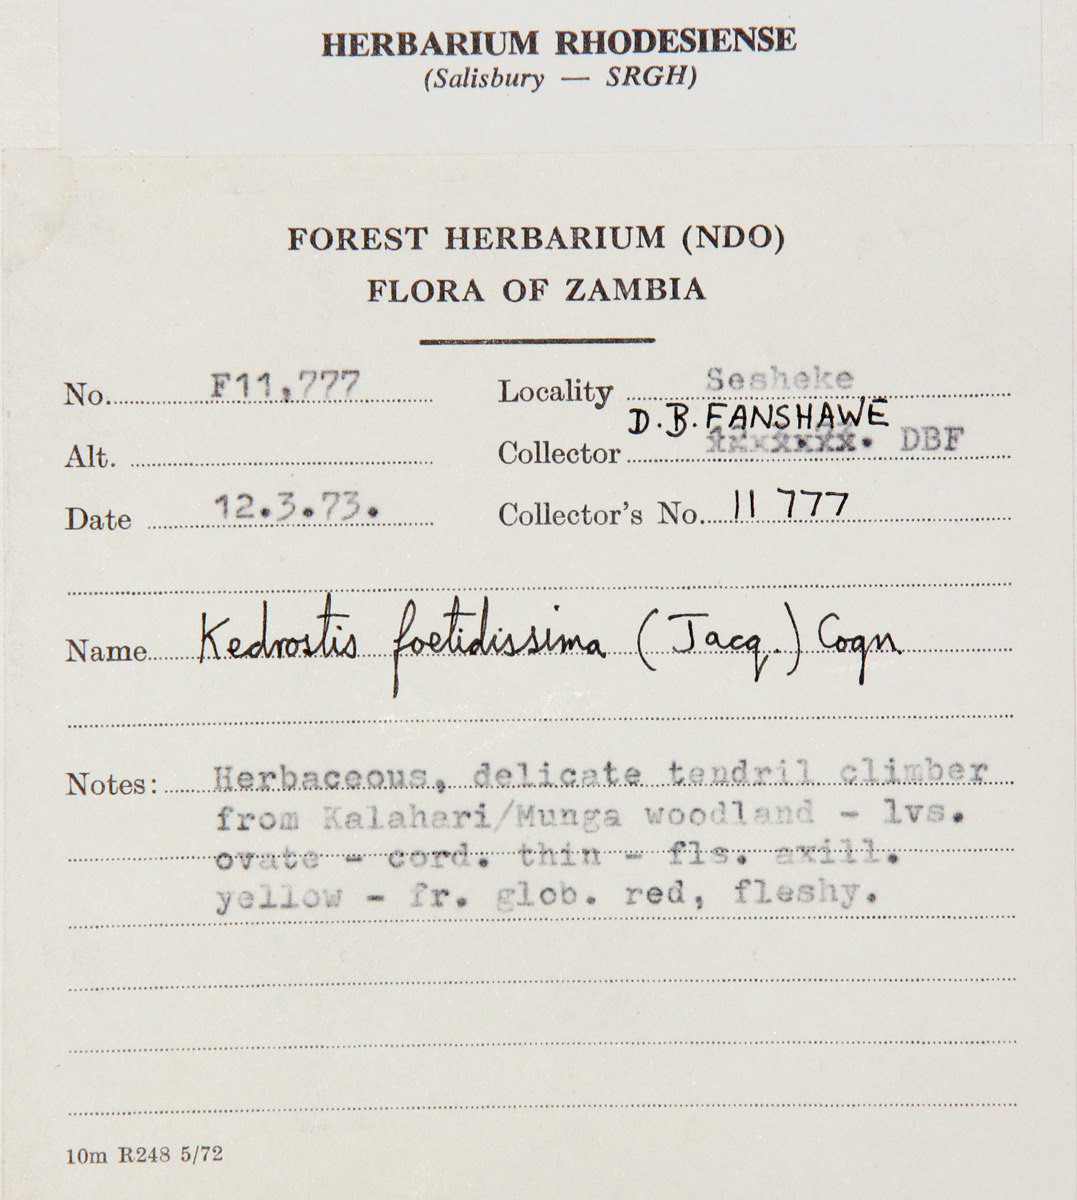 HERBARIUM RHODESIENSE
(Salisbury — SRGH)
FOREST HERBARIUM (NDO)
FLORA OF ZAMBIA
No. F11,777
Locality Sesheke
Alt.
D.B. FANSHAWE
Collector DBF
Date 12.3.73.
Collector's No. 11 777
Name Kedrostis foetidissima (Jacq.) Cogn
Notes: Herbaceous, delicate tendril climber
from Kalahari/Munga woodland - lvs.
ovate - cord. thin - fls. axill.
yellow - fr. glob. red, fleshy.
10m R248 5/72